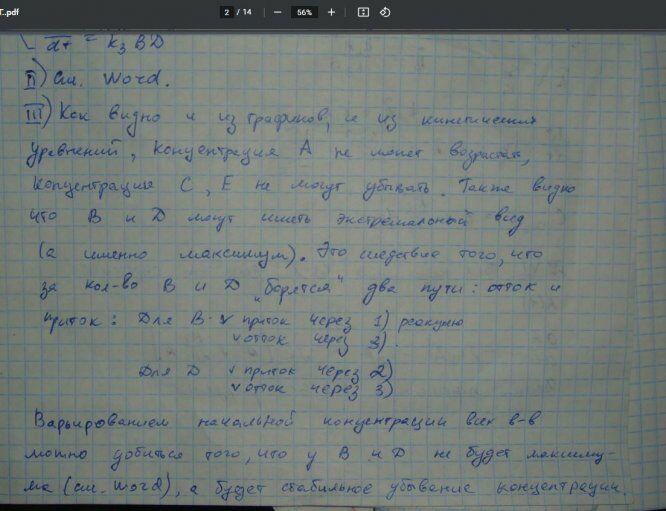 Г.pdf
2 / 14
56%
dt = k₃ BD
II) См. Word.
III) Как видно и из графиков, и из кинетических
уравнений, концентрация А не может возрастать,
концентрация С, Е не могут убывать. Также видно
что В и D могут иметь экстремальный вид
(а именно максимум). Это следствие того, что
за кол-во В и D „борятся" два пути: отток и
приток: Для В: v приток через 1) реакцию
v отток через 3).
Для D v приток через 2)
v отток через 3)
Варьированием начальной концентрации всех в-в
можно добиться того, что у В и D не будет максиму-
ма (см. word), а будет стабильное убывание концентрации.